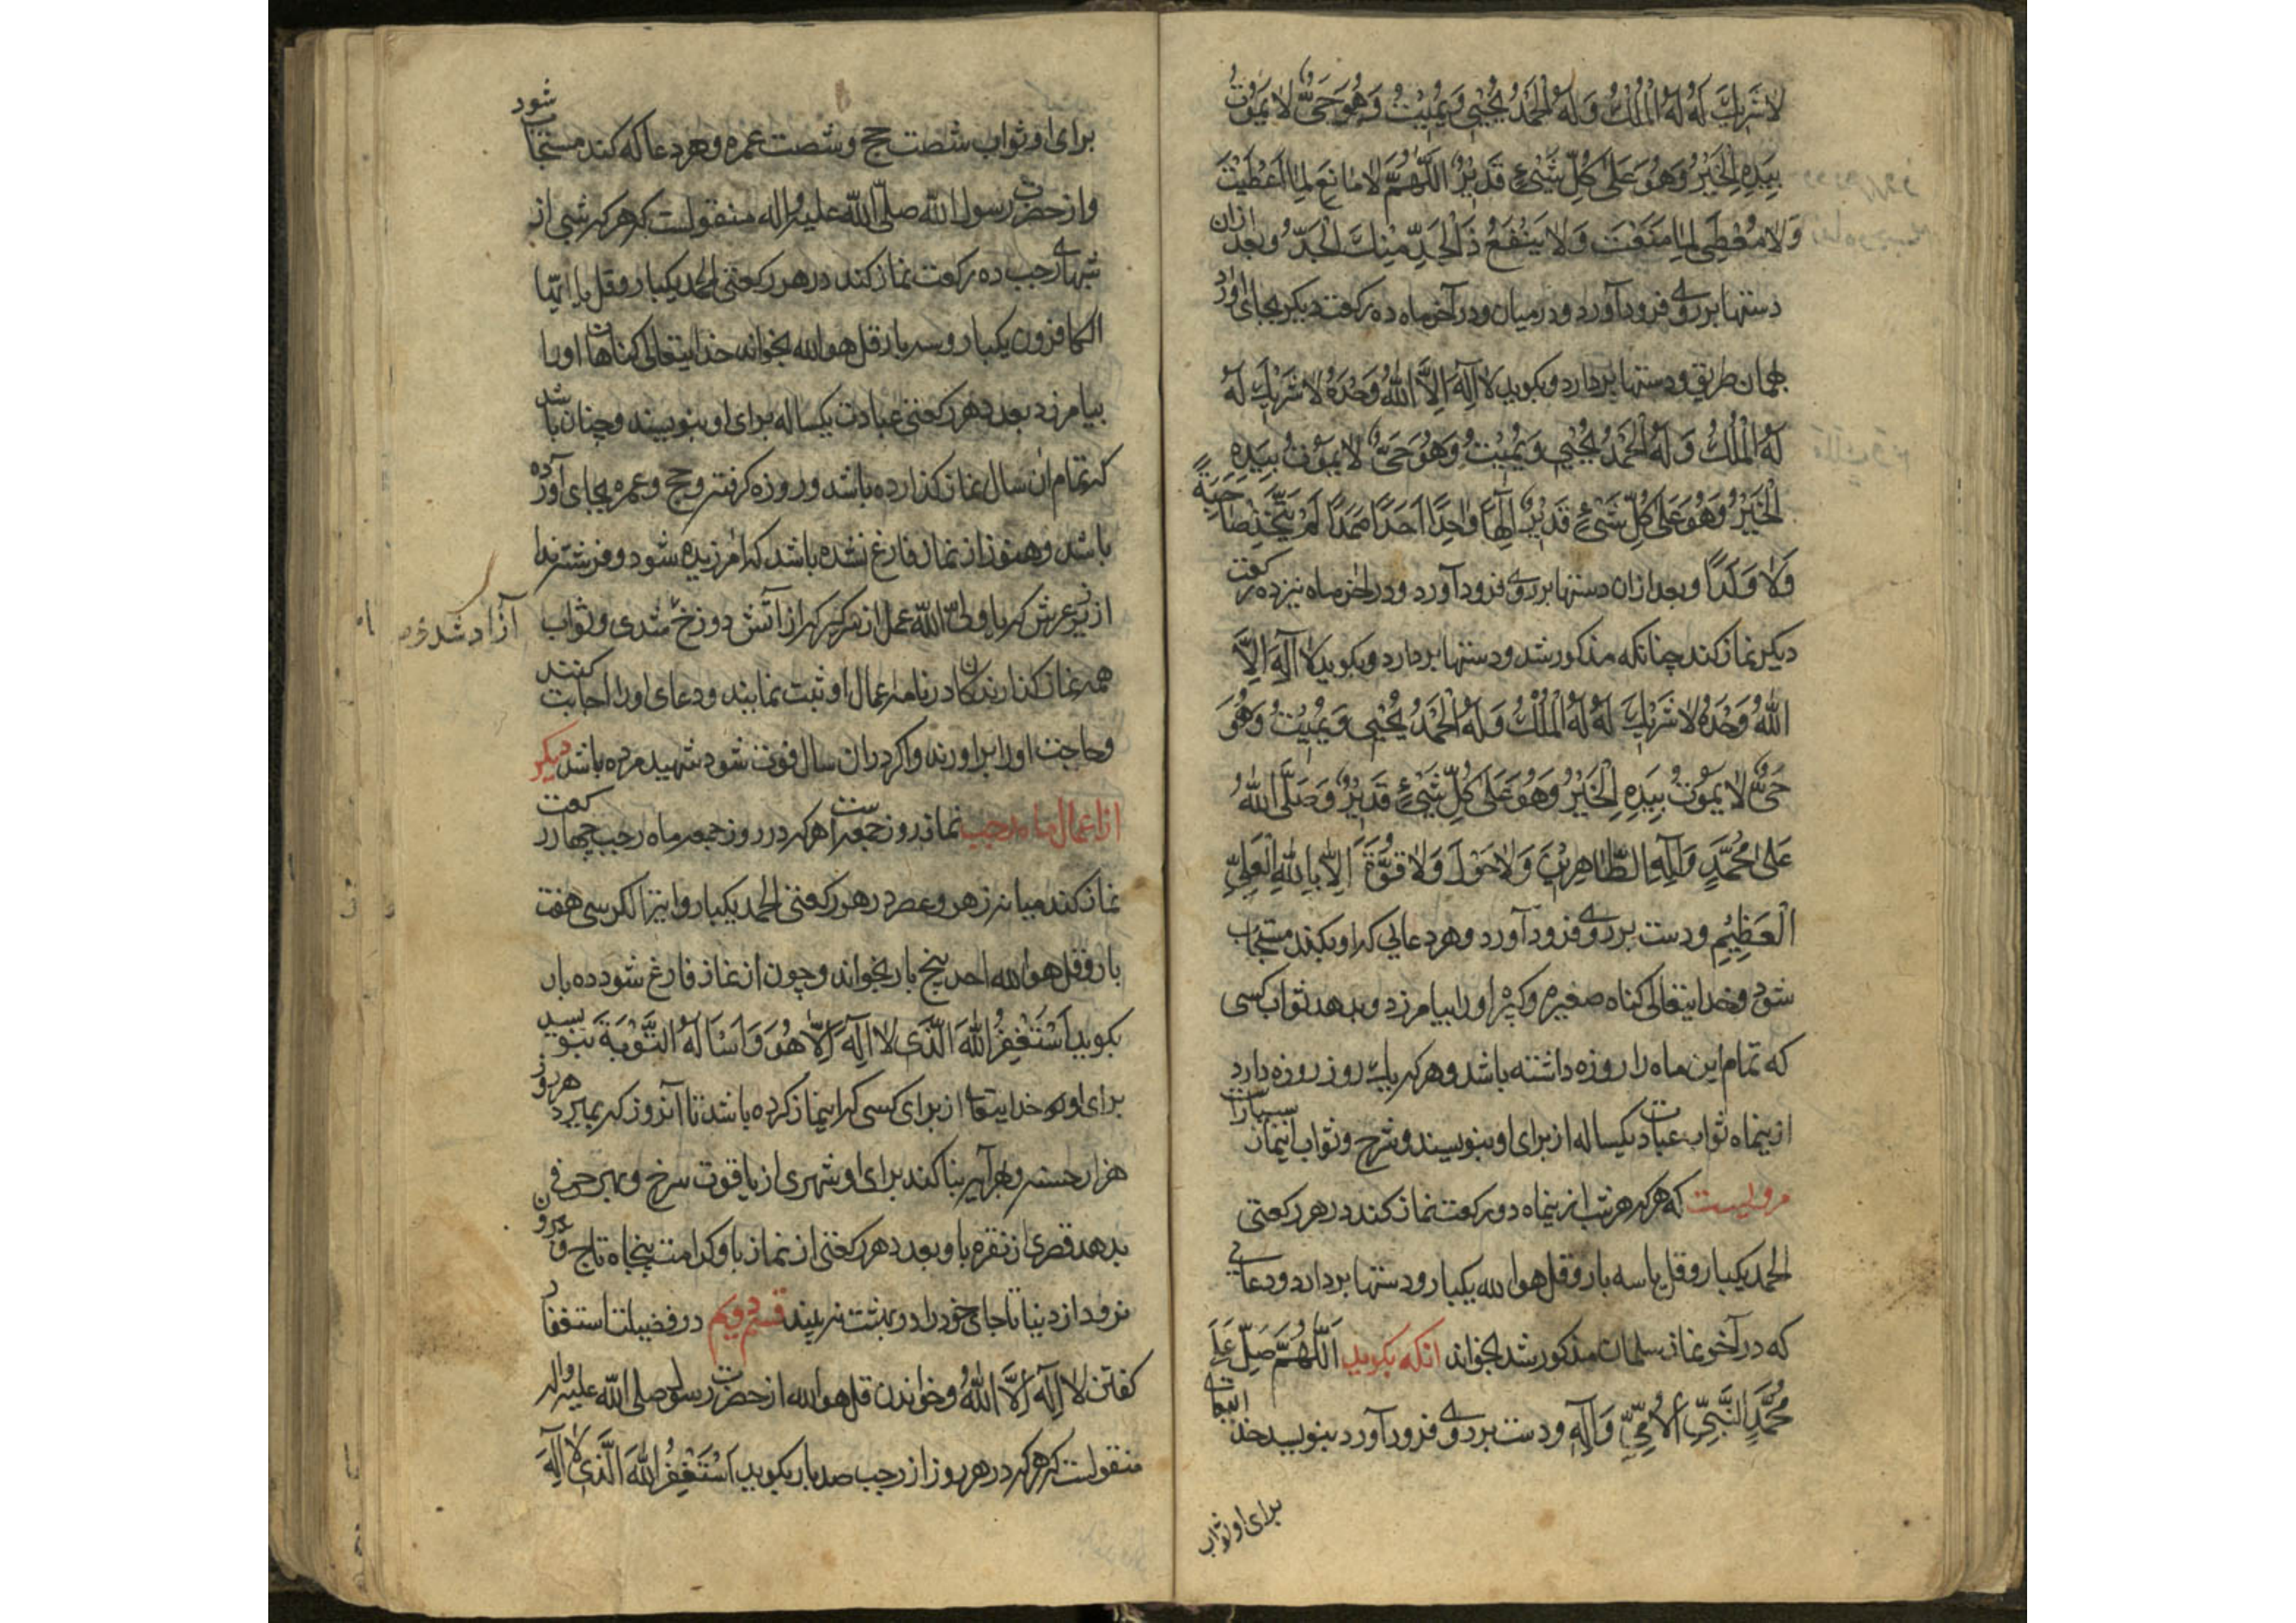 لا شَرِيكَ لَهُ لَهُ الْمُلْكُ وَلَهُ الْحَمْدُ يُحْيِي وَيُمِيتُ وَهُوَ حَيٌّ لا يَمُوتُ
بِيَدِهِ الْخَيْرُ وَهُوَ عَلَى كُلِّ شَيْءٍ قَدِيرٌ اللَّهُمَّ لا مَانِعَ لِمَا أَعْطَيْتَ
وَلا مُعْطِيَ لِمَا مَنَعْتَ وَلا يَنْفَعُ ذَا الْجَدِّ مِنْكَ الْجَدُّ وبعد ازان
دستها بر روی فرود آورد و در میان و در آخر ماه ده رکعت دیکر بجای آورد
بهمان طریق و دستها بردارد و بکوید لا اِلهَ اِلاَّ اللهُ وَحْدَهُ لا شَرِيكَ لَهُ
لَهُ الْمُلْكُ وَ لَهُ الْحَمْدُ يُحْيِي وَ يُمِيتُ وَهُوَ حَيٌّ لا يَمُوتُ بِيَدِهِ
الْخَيْرُ وَهُوَ عَلَى كُلِّ شَيْءٍ قَدِيرٌ اِلٰهًا وَاحِدًا اَحَدًا صَمَدًا لَمْ يَتَّخِذْ صَاحِبَةً
وَلا وَلَدًا و بعد ازان دستها بر روی فرود آورد و در آخر ماه نیز ده رکعت
دیکر نماز کند چنانکه مذکور شد و دستها بردارد و بکوید لا اِلهَ اِلاَّ
اللهُ وَحْدَهُ لا شَرِيكَ لَهُ لَهُ الْمُلْكُ وَ لَهُ الْحَمْدُ يُحْيِي وَ يُمِيتُ وَهُوَ
حَيٌّ لا يَمُوتُ بِيَدِهِ الْخَيْرُ وَهُوَ عَلَى كُلِّ شَيْءٍ قَدِيرٌ وَ صَلَّى اللهُ
عَلَى مُحَمَّدٍ وَآلِهِ الطَّاهِرِينَ وَلا حَوْلَ وَلا قُوَّةَ اِلاَّ بِاللهِ الْعَلِيِّ
الْعَظِيمِ و دست بر روی فرود آورد و هر دعائی که او بکند مستجاب
شود و خدایتعالی کناه صغیره و کبیره او را بیامرزد و بدهد ثواب کسی
که تمام این ماه را روزه داشته باشد و هر که یک روز روزه دارد
ازینماه ثواب عبادت یکساله از برای او بنویسند و شرح و ثواب اینماز بسیار است
مرویست که هر که هر شب ازینماه دو رکعت نماز کند در هر رکعتی
الحمد یکبار و قل یا سه بار و قل هو الله یکبار و دستها بردارد و دعائی
که در آخر نماز سلمان مذکور شد بخواند انکه بکوید اَللّهُمَّ صَلِّ عَلَى
مُحَمَّدٍ النَّبِيِّ الاُمِّيِّ وَ آلِهِ و دست بر روی فرود آورد بنویسد خدایتعالی
برای او ثواب
برای او ثواب شصت حج و شصت عمره و هر دعا که کند مستجاب شود
و از حضرت رسول الله صلی الله علیه و اله منقولست که هر که شبی از
شبهای رجب ده رکعت نماز کند در هر رکعتی الحمد یکبار و قل یا ایها
الکافرون یکبار و سه بار قل هو الله بخواند خدایتعالی کناهان او را
بیامرزد بعدد هر رکعتی عبادت یکساله برای او بنویسند و چنان باشد
که تمام ان سال نماز کذارده باشد و روزه کرفته و حج و عمره بجای آورده
باشد و هنوز از نماز فارغ نشده باشد که امرزیده شود و فرشته ندا
از زیر عرش که یا ولی الله عمل از سر کیر که از آتش دوزخ شدی و ثواب
آزاد شدی
همه نماز کذارندکان در نامه عمال او ثبت نمایند و دعای او را اجابت کنند
و حاجت او را براورند و اکر در ان سال فوت شود شهید مرده باشد دیکر
از اعمال ماه رجب نماز روز جمعه است هر که در روز جمعه ماه رجب چهار رکعت
نماز کند میانه زهر و عصر در هر رکعتی الحمد یکبار و ایة الکرسی هفت
بار و قل هو الله احد پنج بار بخواند و چون از نماز فارغ شود ده بار
بکوید اَسْتَغْفِرُ اللهَ الَّذِي لا اِلهَ اِلاَّ هُوَ وَ اَسْاَلُهُ التَّوْبَةَ بنویسد
برای او خدایتعالی از برای کسی که اینماز کرده باشد تا آنروز که بمیرد هر روز
هزار حسنه و بهر آیه بنا کند برای او شهری از یاقوت سرخ و بهر حرفی
بدهد قصری از نقره باو بعدد هر رکعتی از نماز باو کرامت پنجاه تاج و
نرود از دنیا تا جای خود را در بهشت نه بیند قسم دویم در فضیلت استغفار
کفتن لا اِلهَ اِلاَّ اللهُ و خواندن قل هو الله از حضرت رسول صلی الله علیه واله
منقولست که هر که در هر روز از رجب صد بار بکوید اَسْتَغْفِرُ اللهَ الَّذِي لا اِلهَ